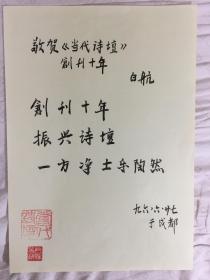 敬贺《当代诗坛》
創刊十年
白航
創刊十年
振兴诗坛
一方净土乐陶然
九六.六.廿七
于成都